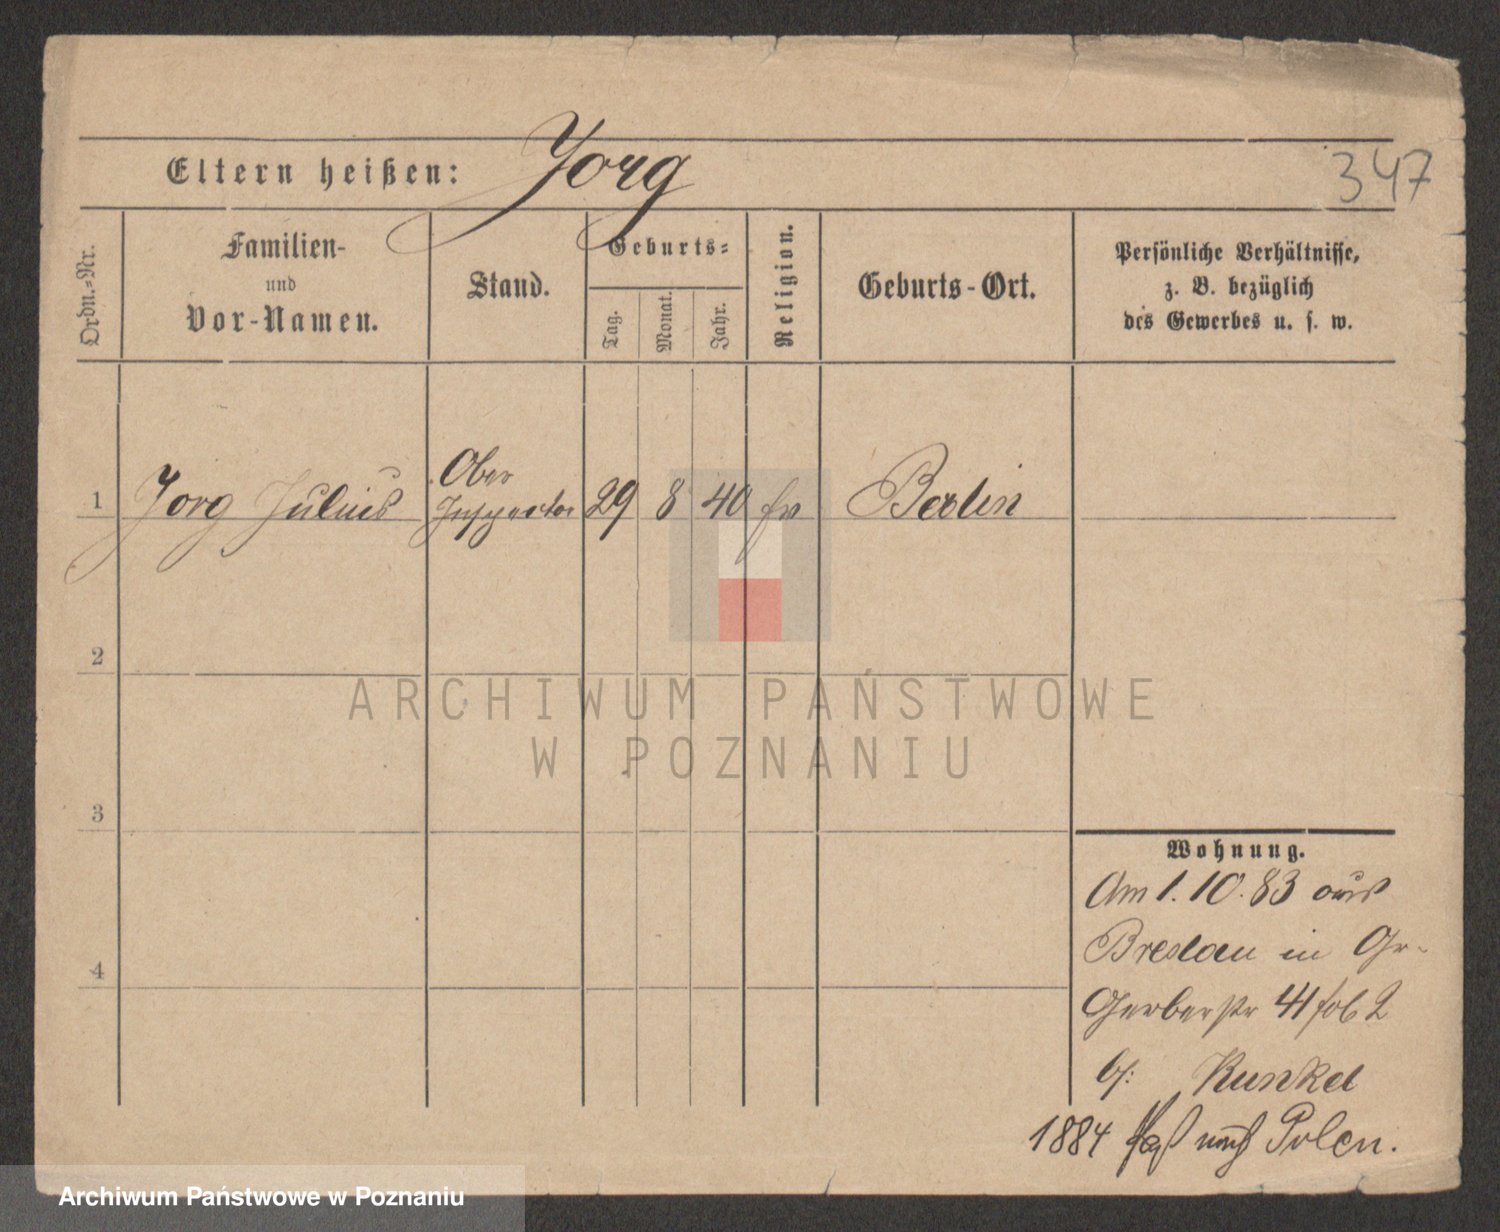 347
Eltern heißen: Jorg
Ordn.-Nr.
Familien-
und
Vor-Namen.
Stand.
Geburts-
Tag.
Monat.
Jahr.
Religion.
Geburts-Ort.
Persönliche Verhältnisse,
z. B. bezüglich
des Gewerbes u. s. w.
1 Jorg Julius Ober Inspector 29 8 40 Berlin
2
3
4
ARCHIWUM PAŃSTWOWE
W POZNANIU
Wohnung.
Am 1. 10. 83 aus
Breslau in Gr-
Gerberstr 41 2
b: Kunkel
1884 Paß nach Polen.
Archiwum Państwowe w Poznaniu